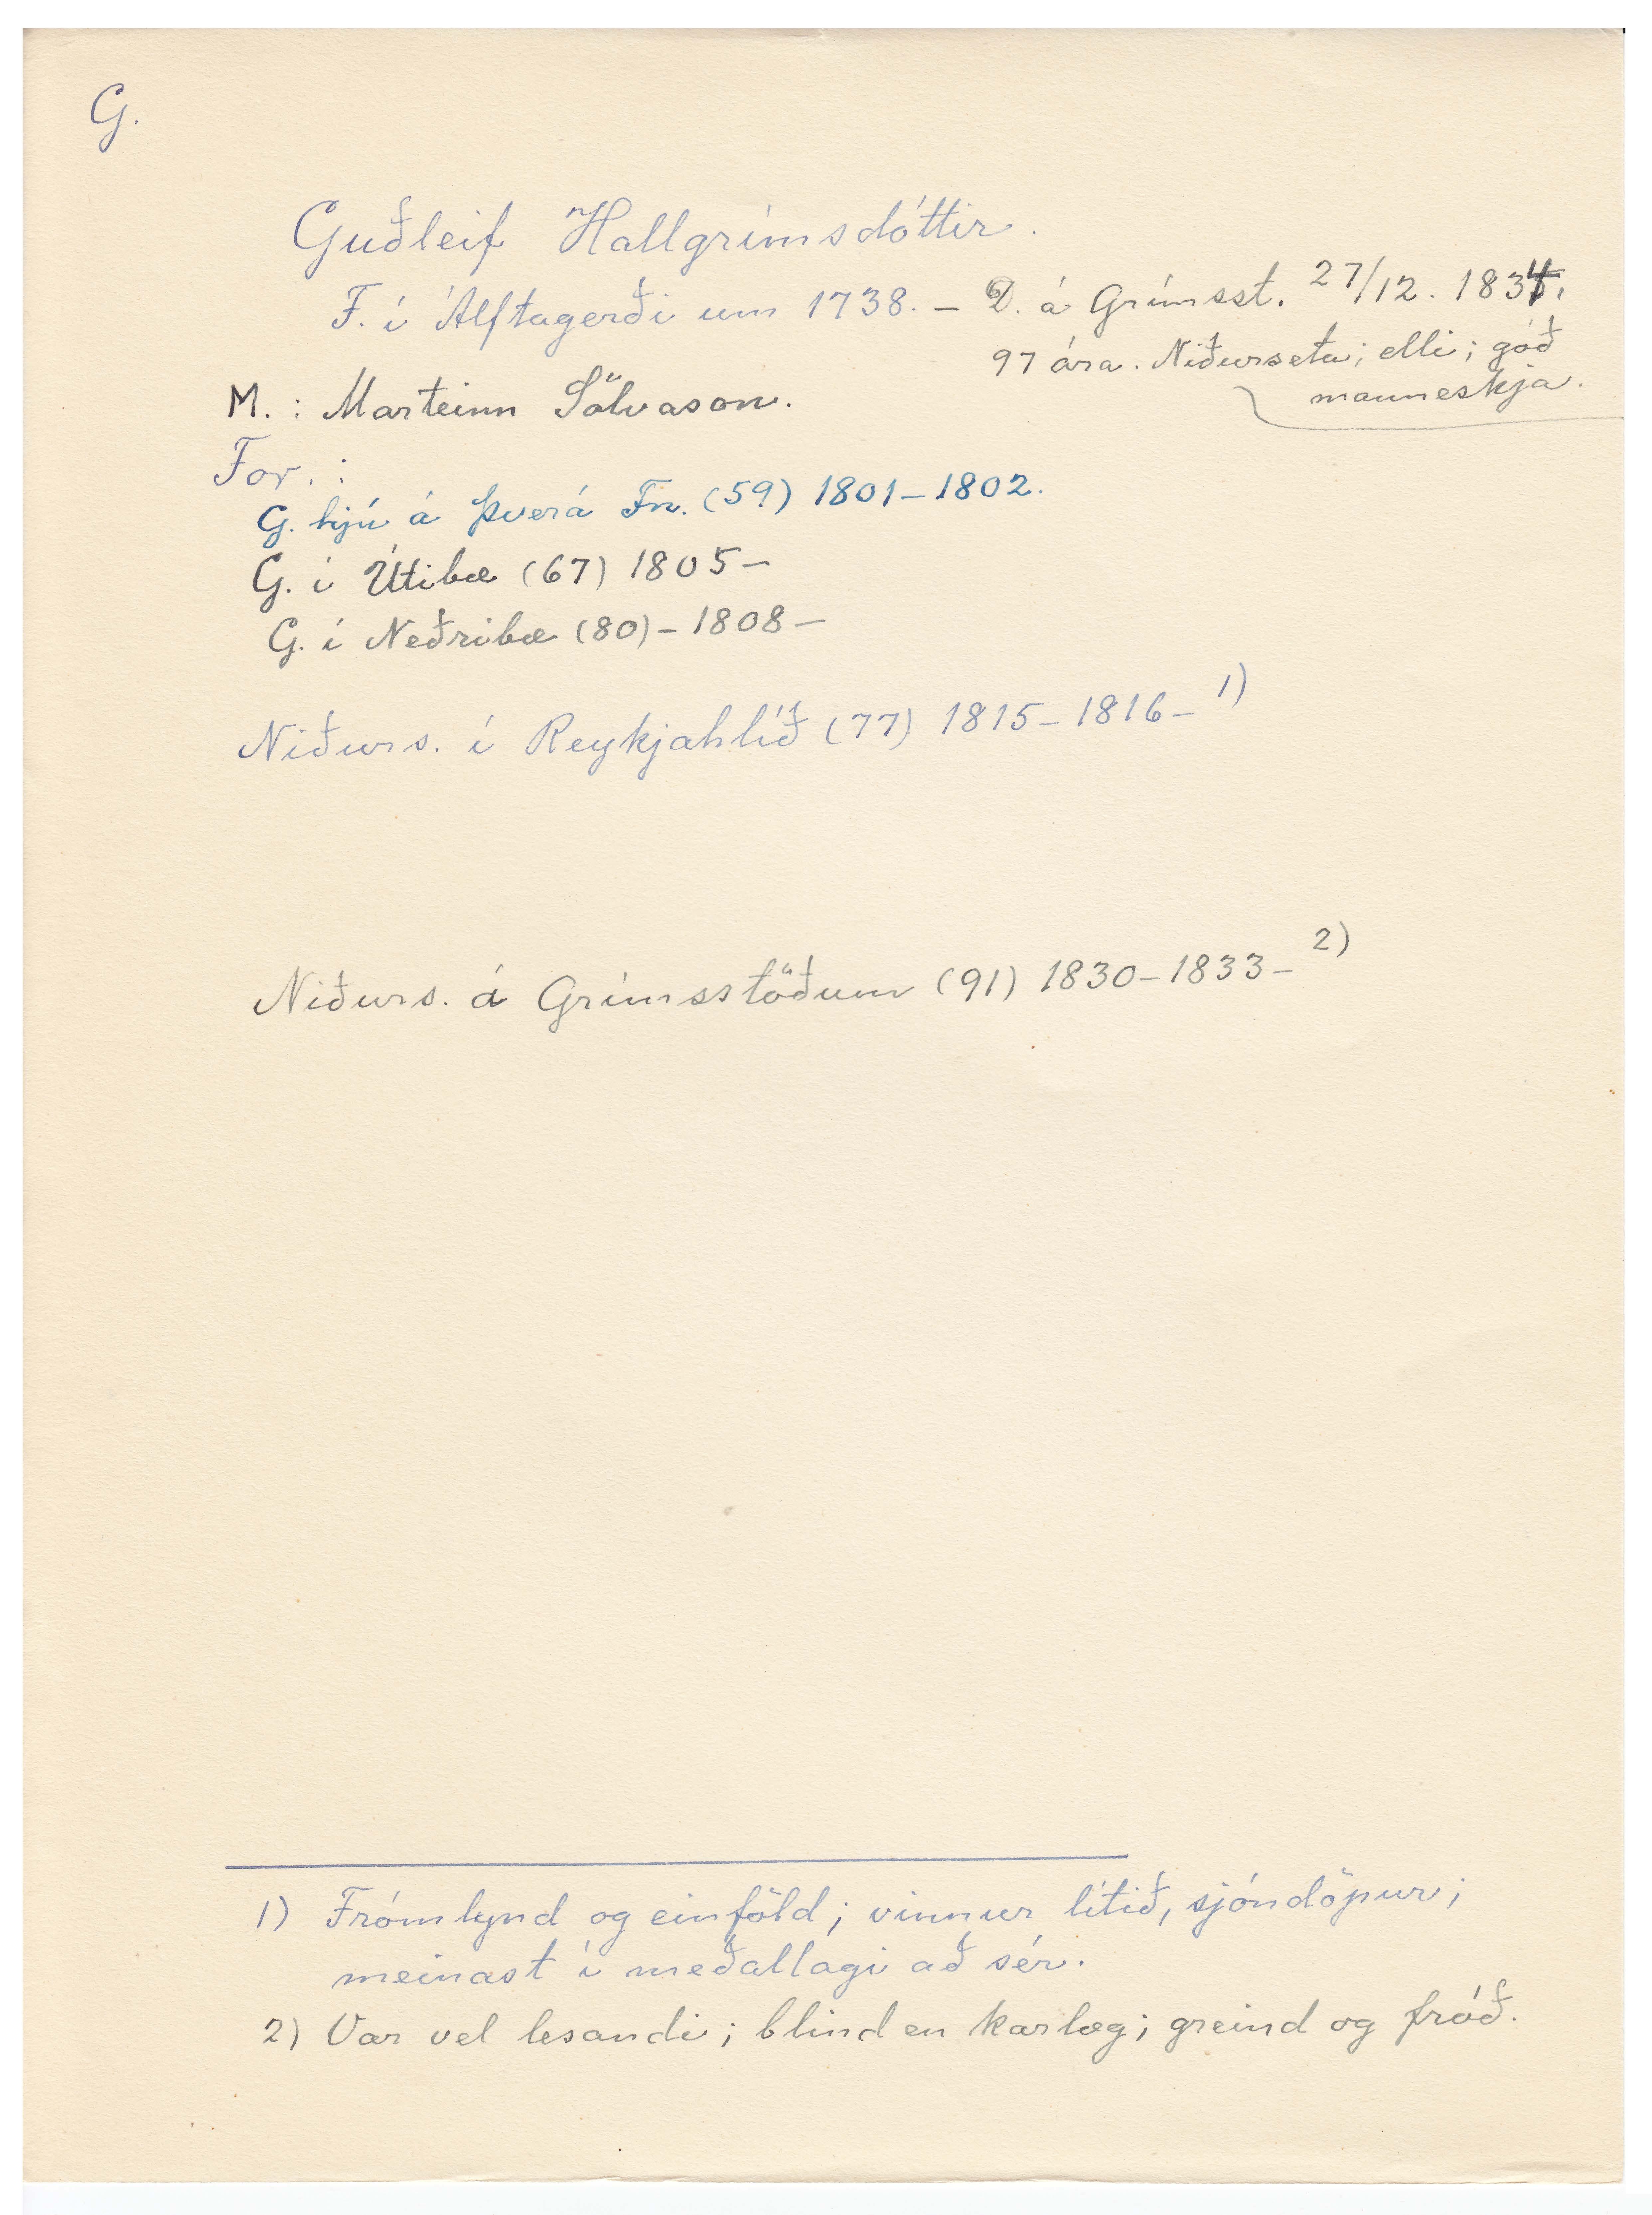 G.
Guðleif Hallgrímsdóttir.
F. í Álftagerði um 1738. – D. á Grímsst. 27/12. 1834.
97 ára. Niðurseta; elli; góð
manneskja.
M. : Marteinn Sölvason.
For. :
G. hjú á Þverá Fn. (59) 1801–1802.
G. í Útibæ (67) 1805–
G. í Neðribæ (80) – 1808 –
Niðurs. í Reykjahlíð (77) 1815 – 1816 – 1)
Niðurs. á Grímsstöðum (91) 1830 – 1833 – 2)
1) Frómlynd og einföld; vinnur lítið, sjóndöpur;
meinast í meðallagi að sér.
2) Var vel lesandi; blind en karlæg; greind og fróð.